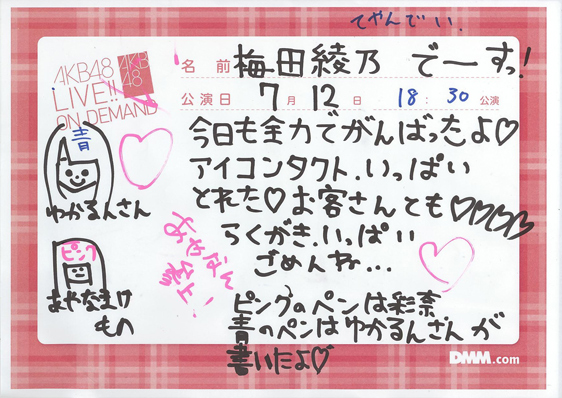 てやんでい.
AKB48
LIVE!!
ON DEMAND
AKB
48
名前 梅田綾乃 でーすっ!
公演日 7月12日 18:30公演
今日も全力でがんばったよ♡
アイコンタクト.いっぱい
とれた♡お客さんとも♡♡♡♡
らくがき.いっぱい
ごめんね...
ピンクのペンは彩奈
青のペンはゆかるんさんが
書いたよ♡
青
ゆかるんさん
ピンク
あやなまけ
もの
DMM.com